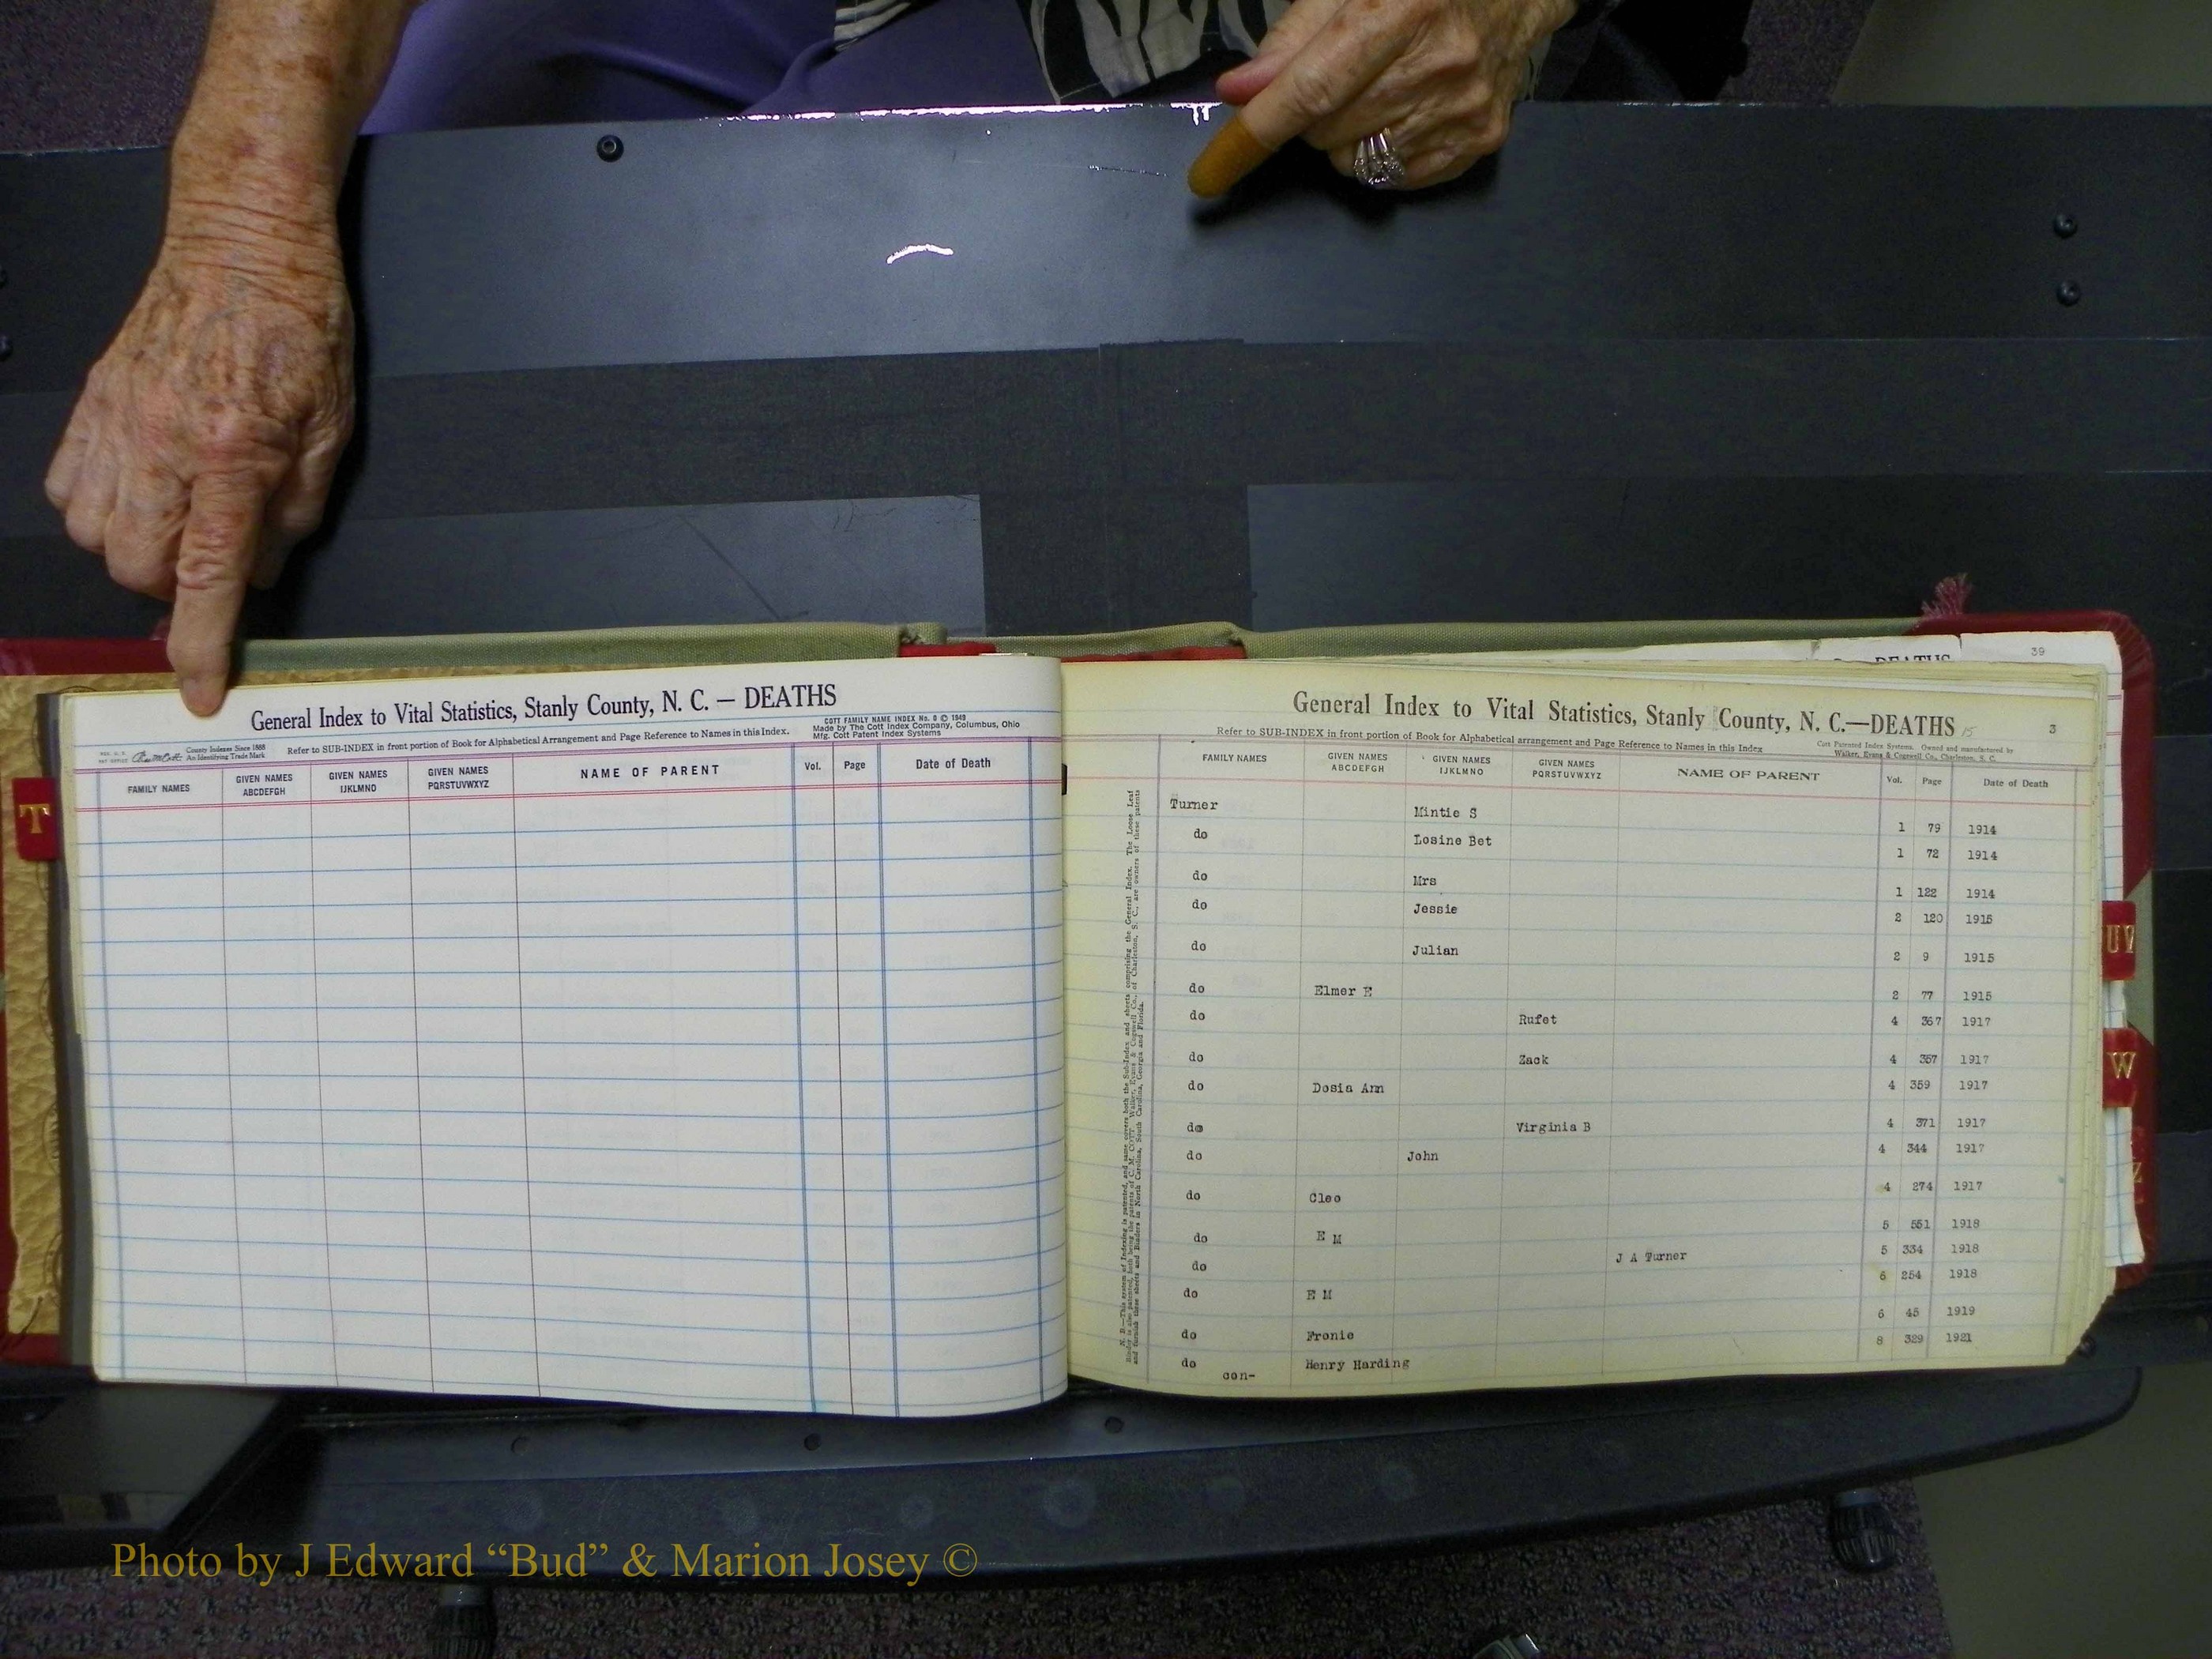 General Index to Vital Statistics, Stanly County, N. C. — DEATHS
COTT FAMILY NAME INDEX No. 0 © 1949
Made by The Cott Index Company, Columbus, Ohio
Mfg. Cott Patent Index Systems
County Indexes Since 1888
An Identifying Trade Mark
Refer to SUB-INDEX in front portion of Book for Alphabetical Arrangement and Page Reference to Names in this Index.
FAMILY NAMES
GIVEN NAMES
ABCDEFGH
GIVEN NAMES
IJKLMNO
GIVEN NAMES
PQRSTUVWXYZ
NAME OF PARENT
Vol.
Page
Date of Death
T
39
DEATHS
General Index to Vital Statistics, Stanly County, N. C.—DEATHS 15 3
Refer to SUB-INDEX in front portion of Book for Alphabetical arrangement and Page Reference to Names in this Index
Cott Patented Index Systems. Owned and manufactured by
Walker, Evans & Cogswell Co., Charleston, S. C.
FAMILY NAMES
GIVEN NAMES
ABCDEFGH
GIVEN NAMES
IJKLMNO
GIVEN NAMES
PQRSTUVWXYZ
NAME OF PARENT
Vol.
Page
Date of Death
Turner Mintie S 1 79 1914
do Losine Bet 1 72 1914
do Mrs 1 122 1914
do Jessie 2 120 1915
do Julian 2 9 1915
do Elmer E 2 77 1915
do Rufet 4 367 1917
do Zack 4 357 1917
do Dosia Ann 4 359 1917
do Virginia B 4 371 1917
do John 4 344 1917
do Cleo 4 274 1917
do E M 5 551 1918
do J A Turner 5 334 1918
do E M 6 254 1918
do Fronie 6 45 1919
do Henry Harding 8 329 1921
con-
UV
W
Z
Photo by J Edward “Bud” & Marion Josey ©